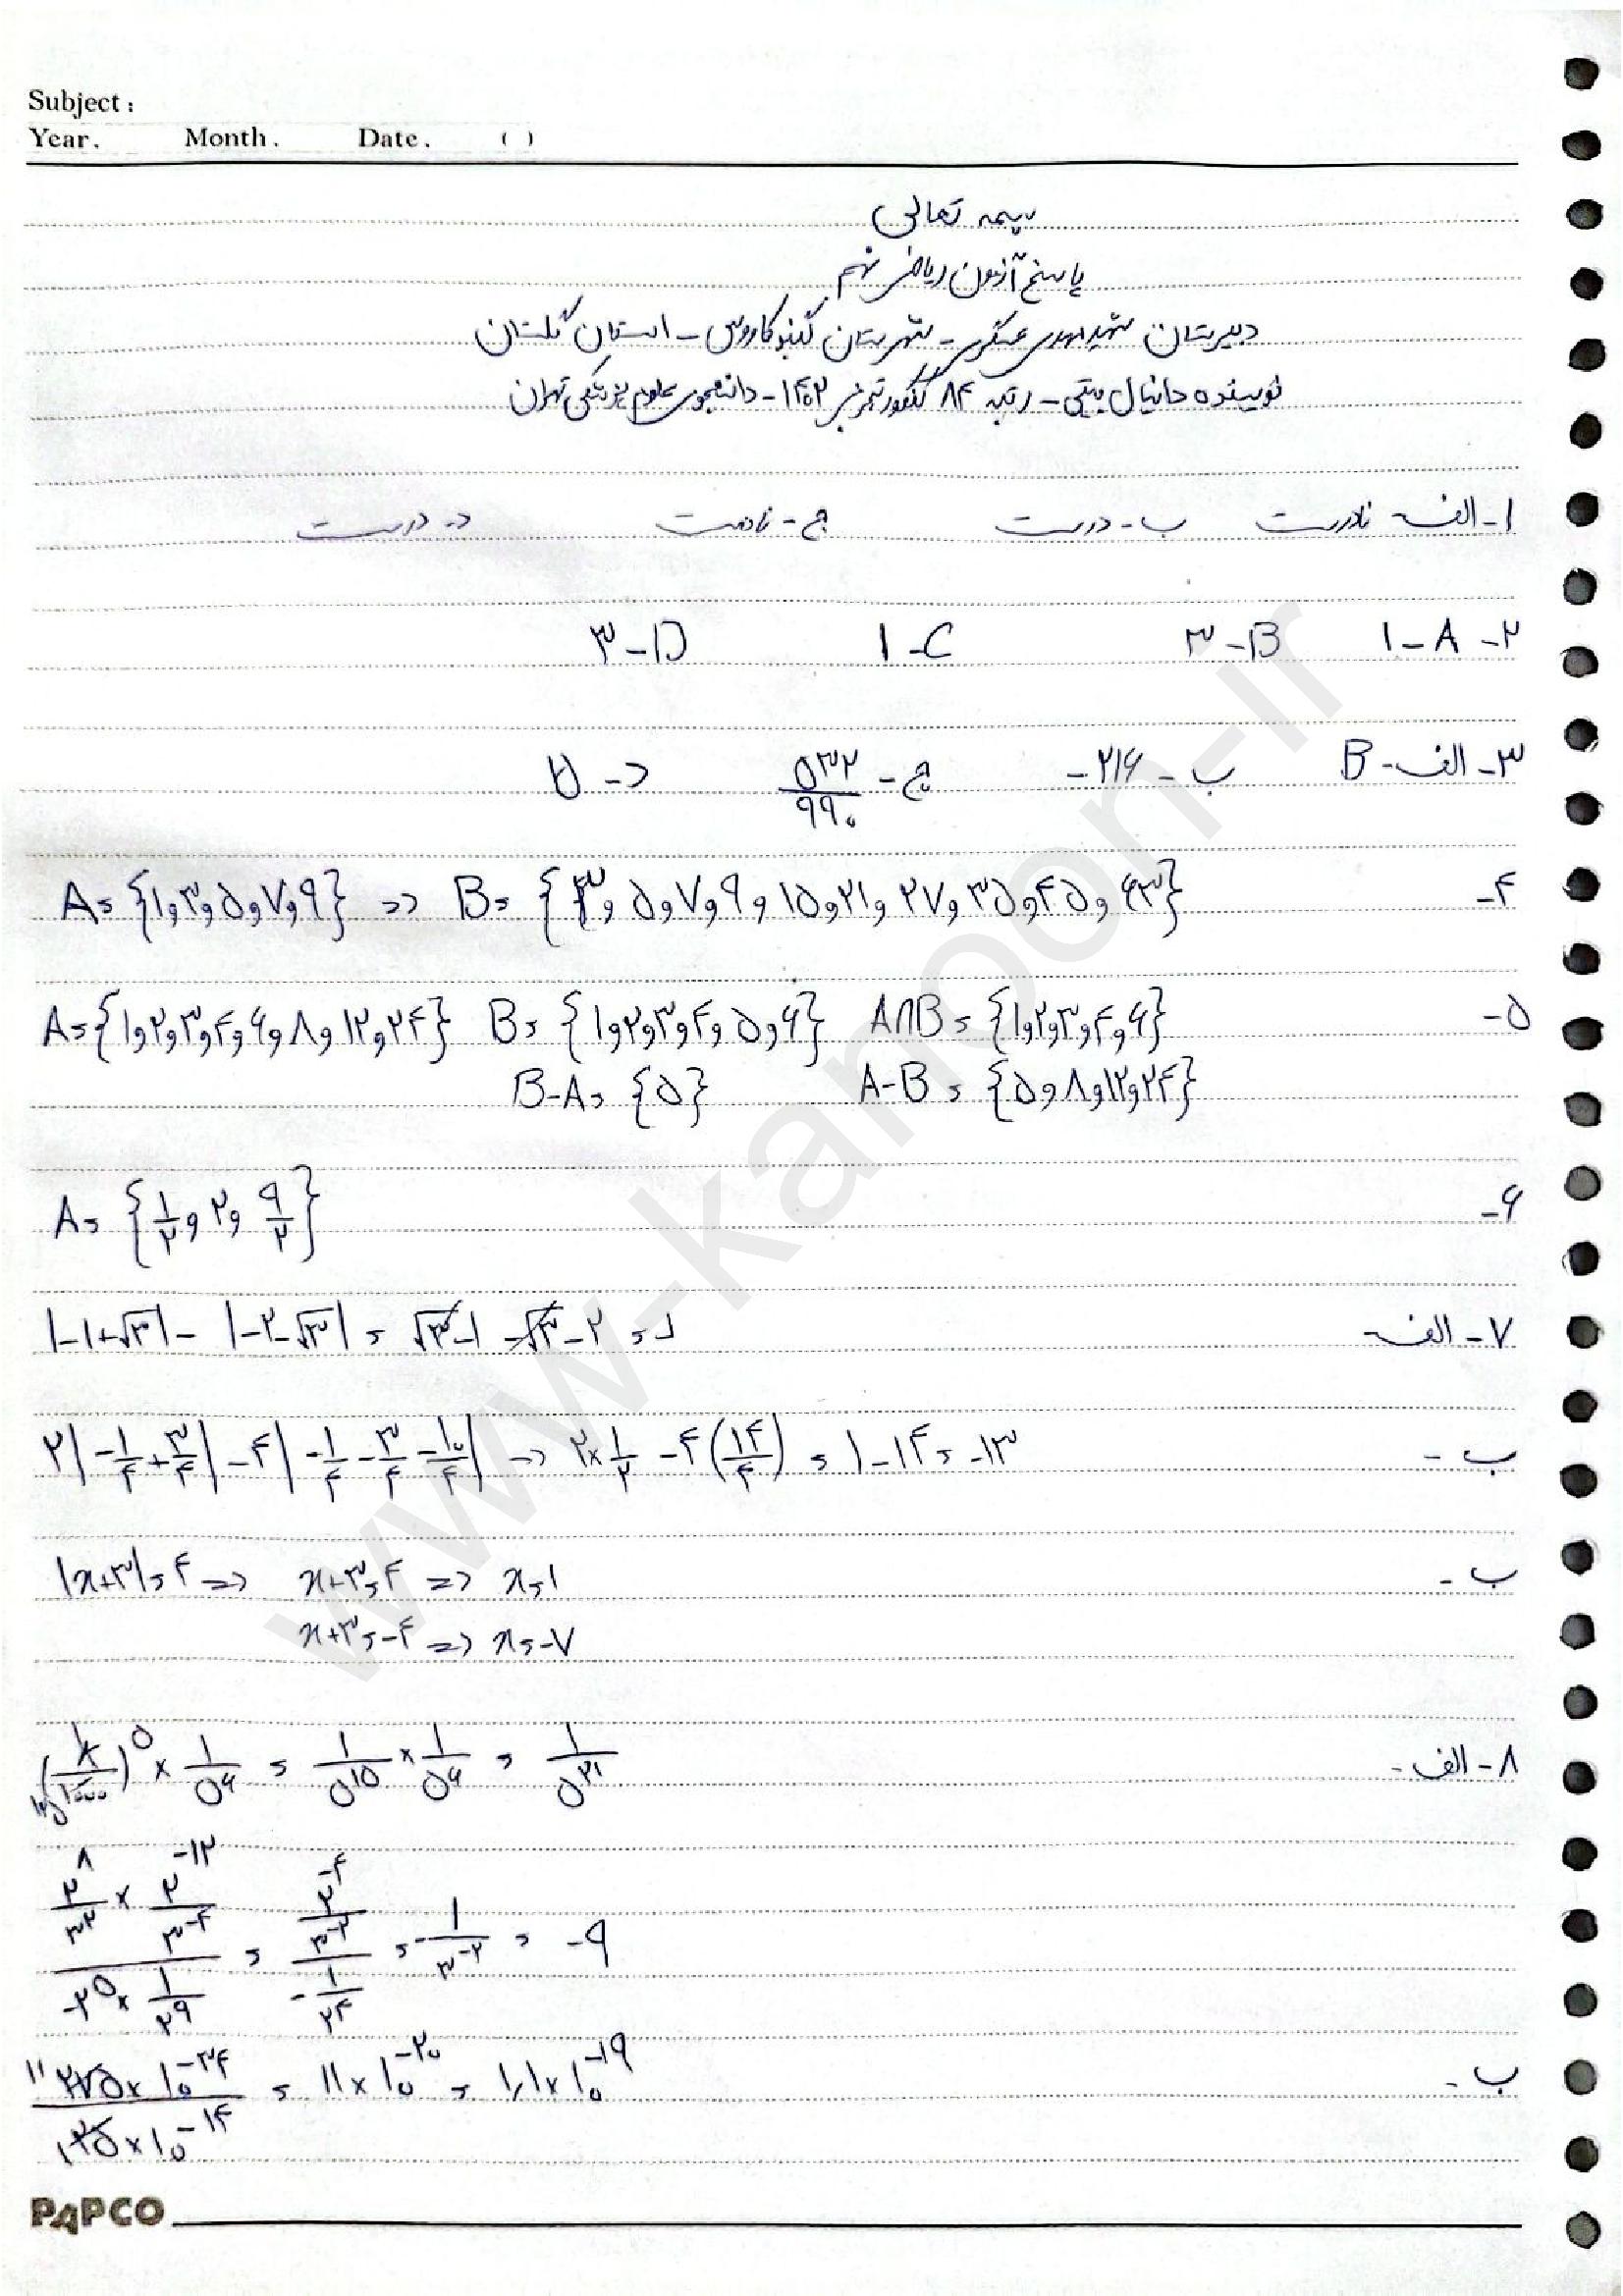 Subject :
Year . Month . Date . ( )
بسمه تعالی
پاسخ آزمون ریاضی نهم
دبیرستان شهید مهدی عسگری - شهرستان گنبدکاووس - استان گلستان
نویسنده دانیال بیتی - رتبه ۸۴ کنکور تجربی ۱۴۰۲ - دانشجوی علوم پزشکی تهران
۱- الف- نادرست ب- درست ج- نادرست د- درست
۲- A-۱ B-۳ C-۱ D-۳
۳- الف- B ب- -۲۱۶ ج- ۵۳۲/۹۹۰ د- ۵
۴- A = {۱و۳و۵و۷و۹} => B = {۳و۵و۷و۹و۱۵و۲۱و۲۷و۳۵و۴۵و۶۳}
۵- A = {۱و۲و۳و۴و۶و۸و۱۲و۲۴} B = {۱و۲و۳و۴و۵و۶} A∩B = {۱و۲و۳و۴و۶}
B-A = {۵} A-B = {۵و۸و۱۲و۲۴}
۶- A = {۱/۲ و ۲ و ۹/۲}
۷- الف- |-۱+√۳| - |-۲-√۳| = √۳-۱ -√۳-۲ =
ب- ۲|-۱/۴+۳/۴| -۴|-۱/۴-۳/۴-۱۰/۴| => ۲×۱/۲ -۴(۱۴/۴) = ۱-۱۴ = -۱۳
ب- |x+۳|=۴ => x+۳=۴ => x=۱
x+۳=-۴ => x=-۷
۸- الف- (۸/۱۰۰۰)^۵ × ۱/۵^۶ = ۱/۵^۱۵ × ۱/۵^۶ = ۱/۵^۲۱
= -۱/۳^-۲ = -۹
ب- ۲۷۵×۱۰^-۳۴ / ۲۵×۱۰^-۱۴ = ۱۱×۱۰^-۲۰ = ۱٫۱×۱۰^-۱۹
PAPCO
www-kanoon-ir